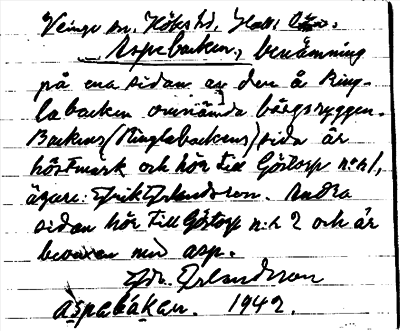 Veinge sn. Höks hd. Hall. län.
Aspebacken, benämning
på ena sidan av den å Ring-
labacken ovannämda bärgsryggen.
Backens (Ringlabackens) sida är
höstmark och hör till Göstorp n:r 1,
ägare: Erik Erlandsson. Andra
sidan hör till Göstorp n:r 2 och är
bevuxen med asp.
Edv. Erlandsson
aspabákan. 1942.